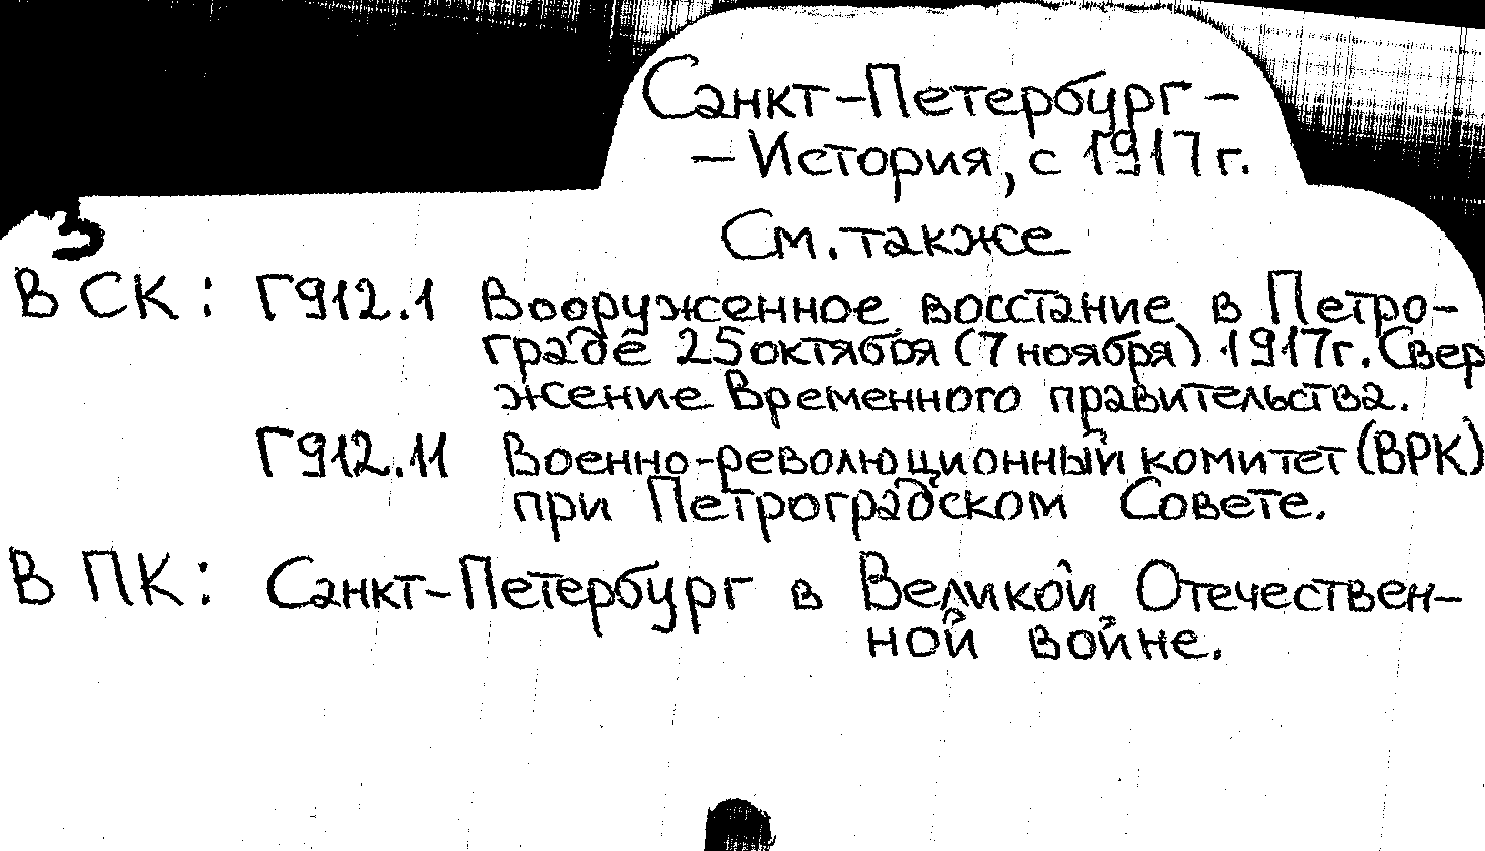 Санкт-Петербург -
- История, с 1917 г.
3
См. также
В СК: Г912.1 Вооруженное восстание в Петро-
граде 25 октября (7 ноября) 1917г. Свер
жение Временного правительства.
Г912.11 Военно-революционный комитет (ВРК)
при Петроградском Совете.
В ПК: Санкт-Петербург в Великой Отечествен-
ной войне.